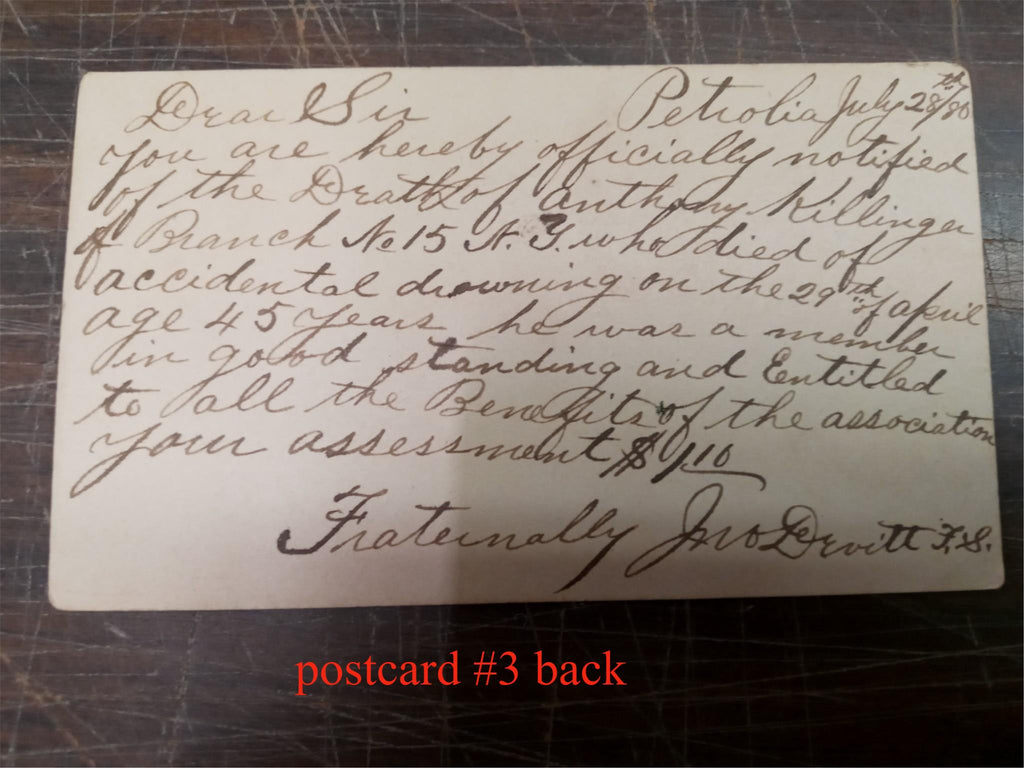 Dear Sir Petrolia July 28th/80
you are hereby officially notified
of the Death of anthony Killinger
of Branch No 15 N.Y. who died of
accidental drowning on the 29th of april
age 45 years he was a member
in good standing and Entitled
to all the Benefits of the association
your assessment $1.10
Fraternally Jno Devitt F.S.
postcard #3 back